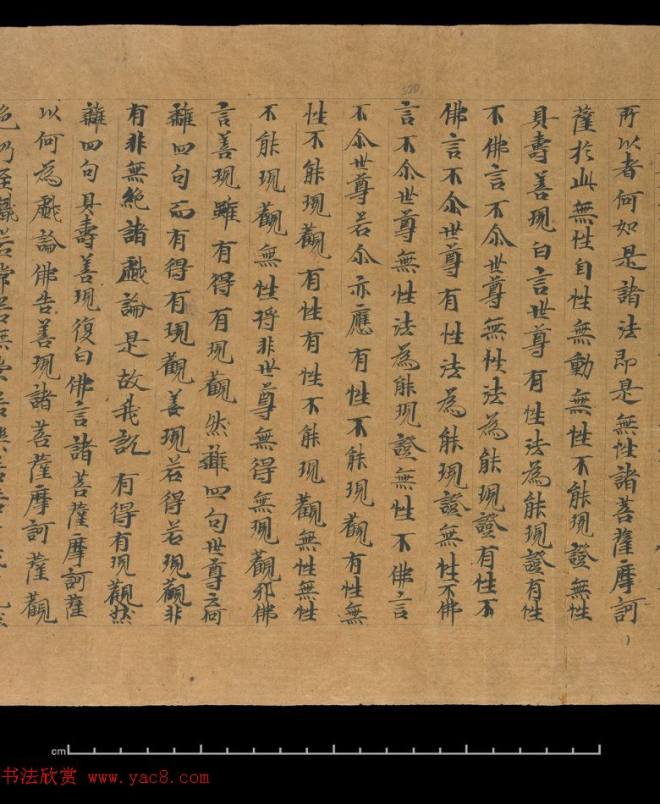 所以者何如是諸法即是無性諸菩薩摩訶
薩於此無性自性無動無性不能現證無性
具壽善現白言世尊有性法為能現證有性
不佛言不尒世尊無性法為能現證有性不
佛言不尒世尊有性法為能現證無性不佛
言不尒世尊無性法為能現證無性不佛言
不尒世尊若尒亦應有性不能現觀有性無
性不能現觀有性有性不能現觀無性無性
不能現觀無性將非世尊無得無現觀邪佛
言善現雖有得有現觀然離四句世尊云何
離四句而有得有現觀善現若得若現觀非
有非無絕諸戲論是故我說有得有現觀然
離四句具壽善現復白佛言諸菩薩摩訶薩
以何為戲論佛告善現諸菩薩摩訶薩觀
色乃至識若常若無常
520
cm
书法欣赏 www.yac8.com